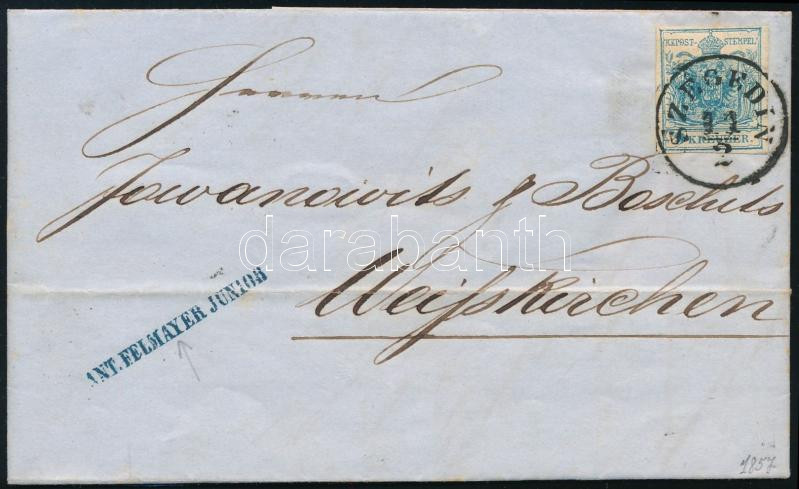 KKPOST-STEMPEL
SZEGEDIN
11
2
9 KREUZER.
Herren
Jowanowits & Boschits
Weißkirchen
ANT. FELMAYER JUNIOR
darabanth
1857